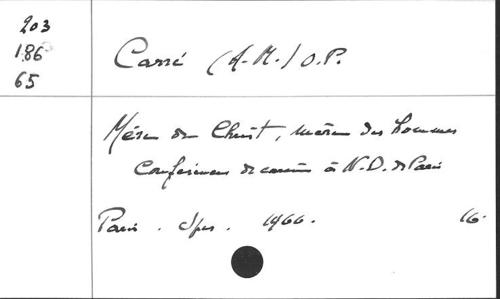 203
186
65
Carré (A-M.) O.P.
Mère du Christ, mère des hommes
Conférences de carême à N.D. de Paris
Paris. Spes. 1966. 16